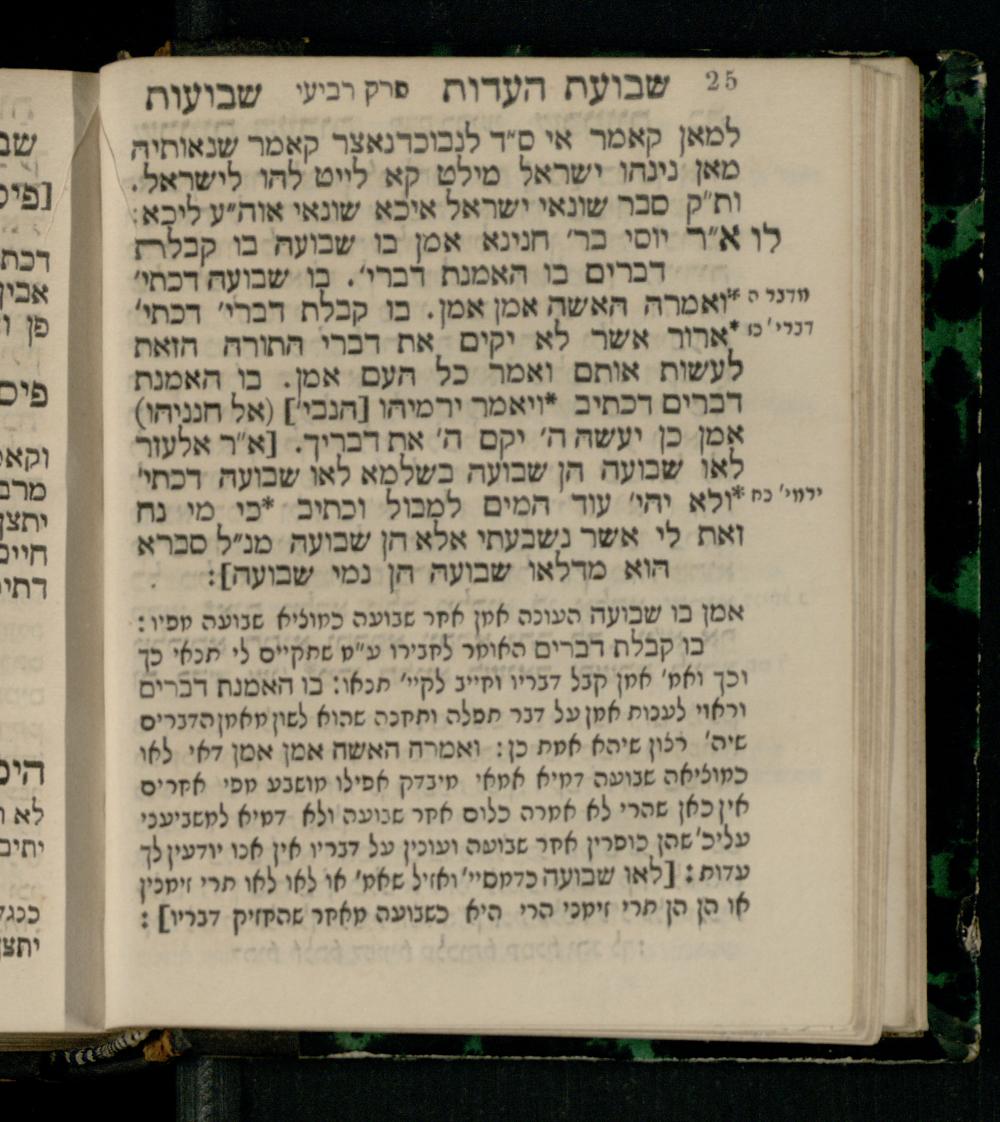 25 שבועת העדות פרק רביעי שבועות
למאן קאמר אי ס״ד לנבוכדנאצר קאמר שנאותיה
מאן נינהו ישראל מילט קא לייט להו לישראל.
ות״ק סבר שונאי ישראל איכא שונאי אוה״ע ליכא:
לו א״ר יוסי בר׳ חנינא אמן בו שבועה בו קבלת
דברים בו האמנת דברי׳. בו שבועה דכתי׳
מדבר ה *ואמרה האשה אמן אמן. בו קבלת דברי׳ דכתי׳
דברי׳ כז *ארור אשר לא יקים את דברי התורה הזאת
לעשות אותם ואמר כל העם אמן. בו האמנת
דברים דכתיב *ויאמר ירמיהו [הנבי׳] (אל חנניהו)
אמן כן יעשה ה׳ יקם ה׳ את דבריך. [א״ר אלעזר
לאו שבועה הן שבועה בשלמא לאו שבועה דכתי׳
ירמי׳ כח *ולא יהי׳ עוד המים למבול וכתיב *כי מי נח
זאת לי אשר נשבעתי אלא הן שבועה מנ״ל סברא
הוא מדלאו שבועה הן נמי שבועה]:
אמן בו שבועה העונה אמן אחר שבועה כמוציא שבועה מפיו:
בו קבלת דברים האומר לחבירו ע״מ שתקיים לי תנאי כך
וכך ואמ׳ אמן קבל דבריו וחייב לקיי׳ תנאו: בו האמנת דברים
וראוי לענות אמן על דבר תפלה ותחנה שהוא לשון מאמן הדברים
שיה׳ רצון שיהא אמת כן: ואמרה האשה אמן אמן דאי לאו
כמוציאה שבועה דמיא אמאי מיבדק אפילו מושבע מפי אחרים
אין כאן שהרי לא אמרה כלום אחר שבועה ולא דמיא למשביעני
עליכ׳ שהן כופרין אחר שבועה ועונין על דבריו אין אנו יודעין לך
עדות: [לאו שבועה כדמסיי׳ ואזיל שאמ׳ או לאו לאו תרי זימנין
או הן הן תרי זימני הרי היא כשבועה מאחר שהחזיק דבריו]: